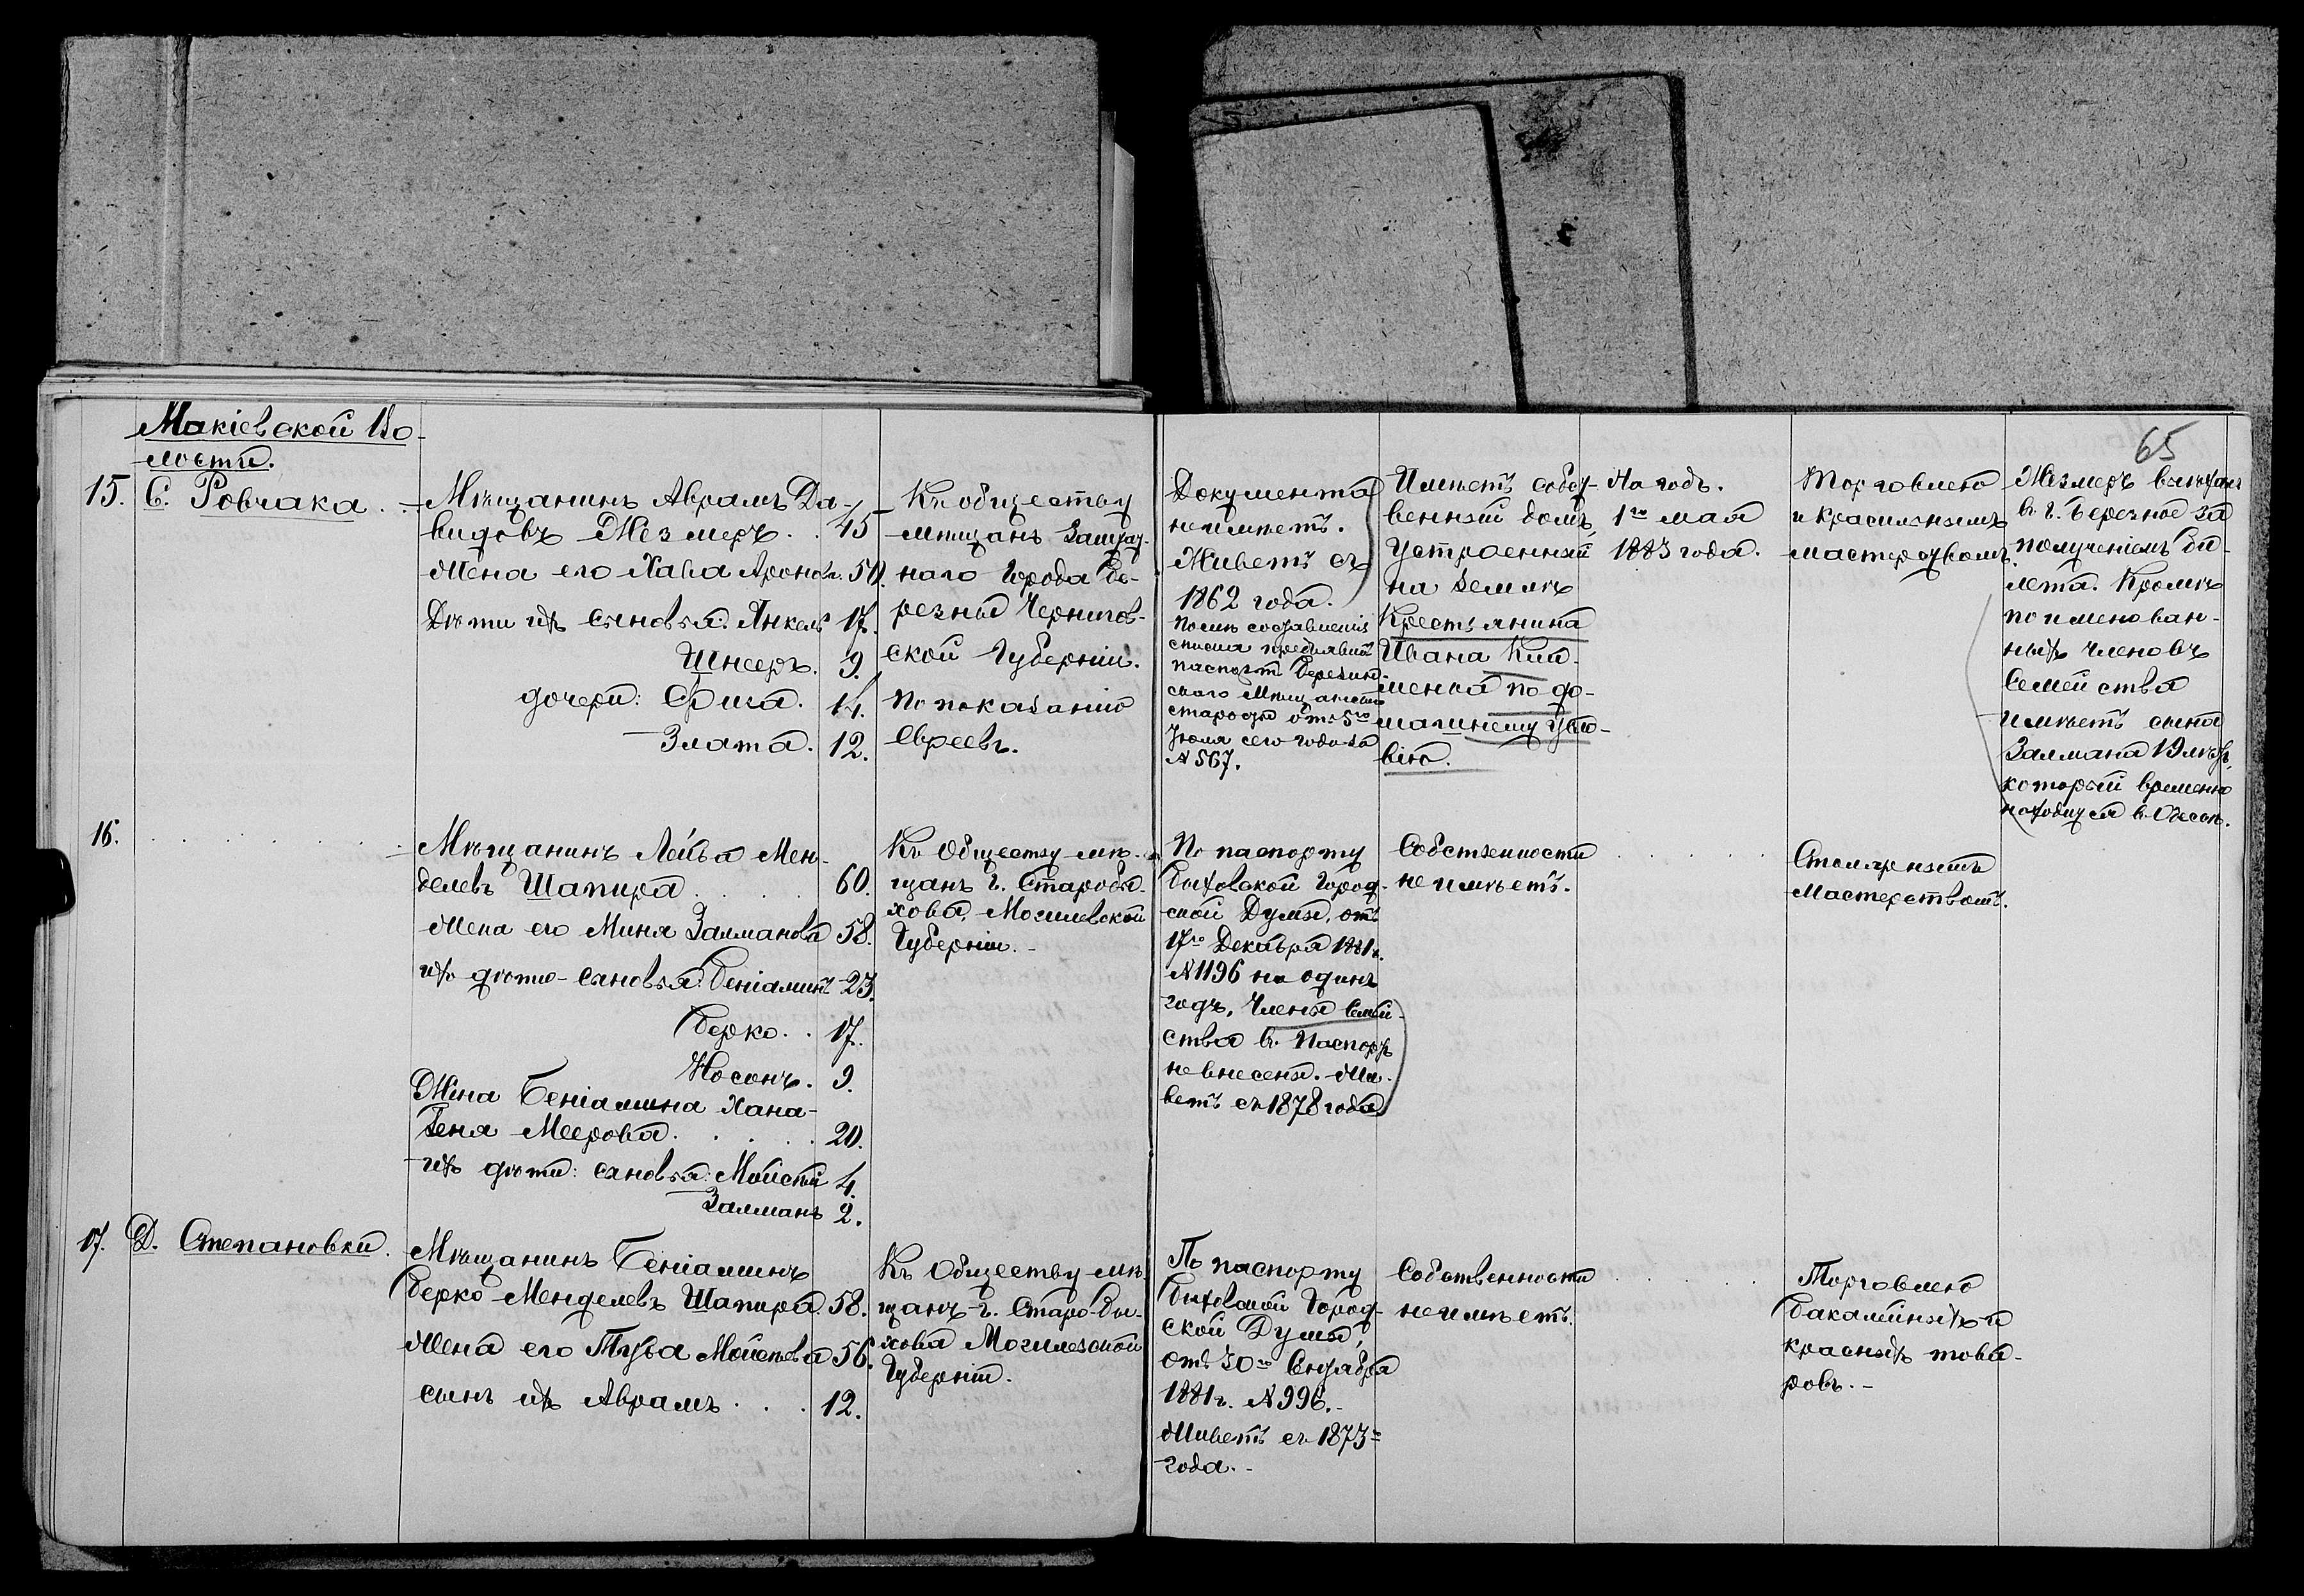 65
Макіевской Во-
лости.
15. С. Ровчака.
Мѣщанинъ Аврамъ Да-
видовъ Мезмеръ. . 45
Жена его Хава Аронова. 50.
Дѣти ихъ сыновья: Янкель 17.
Шнееръ. 9.
дочери: Фрига. 14.
Злата. 12.
Къ обществу
мѣщанъ Заштат-
наго города Бе-
резны Чернигов-
ской Губерніи.
По показанію
Евреевъ.
Документа
не имѣетъ.
Живетъ съ
1862 года.
Послѣ составленія
списка предъявилъ
паспортъ Березин-
скаго Мѣщанскаго
старосты отъ 5го
Іюля сего года за
№ 567.
Имѣетъ собст-
венный домъ,
устроенный
на землѣ
Крестьянина
Ивана Кли-
менка по до-
машнему усло-
вію.
На годъ.
1го мая
1883 года.
Торговлею
и красильнымъ
мастерствомъ.
Мезмеръ выѣхалъ
въ г. Березное за
полученіемъ би-
лета. Кромѣ
поименован-
ныхъ членовъ
Семейства
имѣетъ сына
Залмана 19 лѣтъ,
который временно
находится въ Одессѣ.
16.
Мѣщанинъ Лейба Мен-
делевъ Шапира. . . . 60.
Жена его Миня Залманова 58.
ихъ дѣти - сыновья: Беніаминъ 23.
Берко. . 17.
Носонъ. 9.
Жена Беніамина Хана-
Геня Меерова. . . . . 20.
ихъ дѣти: сыновья: Мойсѣй 4.
Залманъ 2.
Къ Обществу мѣ-
щанъ г. Старобы-
хова, Могилевской
Губерніи. -
По паспорту
Быховской Город-
ской Думы, отъ
17го Декабря 1881г.
№ 1196 на одинъ
годъ, Члены Семей-
ства въ Паспортъ
не внесены. Жи-
ветъ съ 1878 года.
Собственности
не имѣетъ.
Столярнымъ
Мастерствомъ.
17. Д. Степановки.
Мѣщанинъ Беніаминъ
Берко Менделевъ Шапира. 58.
Жена его Туба Мойсѣева 56.
сынъ ихъ Аврамъ. . . . 12.
Къ Обществу мѣ-
щанъ г. Старо-Бы-
хова Могилевской
Губерніи.
По паспорту
Быховской Город-
ской Думы,
отъ 30го Сентября
1881г. № 996. -
Живетъ съ 1873=
года. -
Собственности
не имѣетъ.
Торговлею
бакалійныхъ и
красныхъ това-
ровъ. -